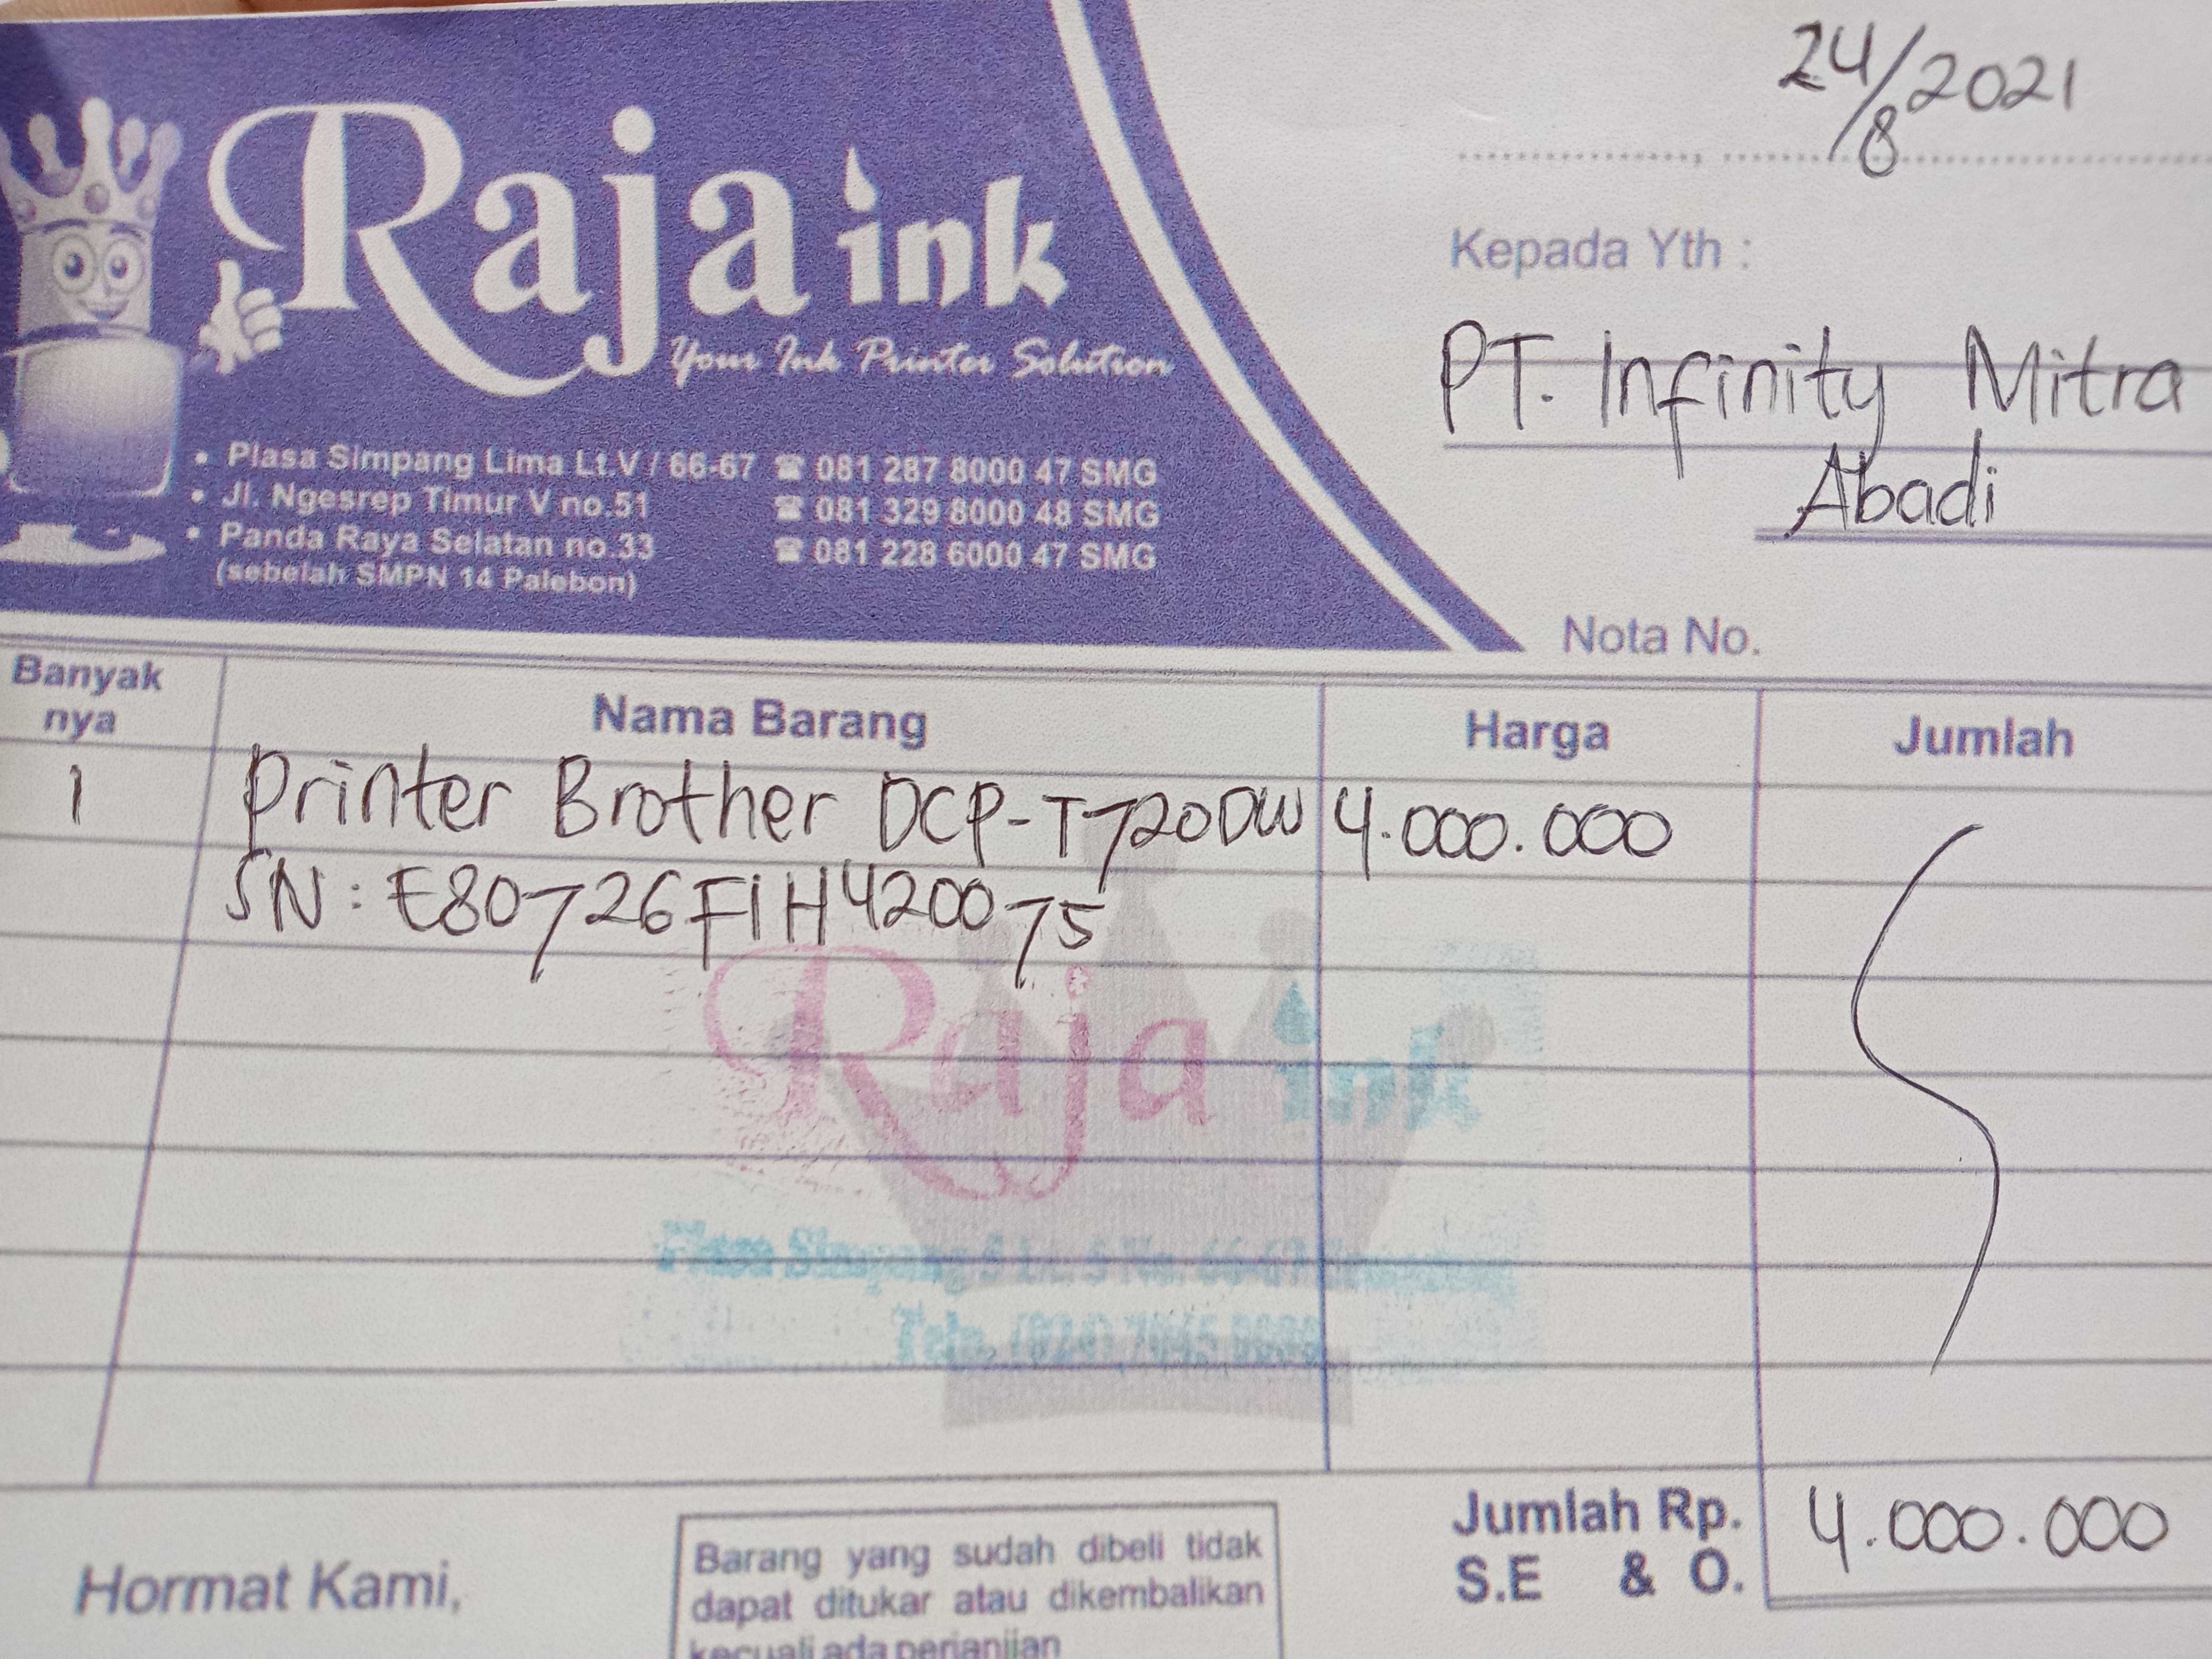 24/8 2021
Raja ink
Your Ink Printer Solution
• Plasa Simpang Lima Lt.V / 66-67 ☎ 081 287 8000 47 SMG
• Jl. Ngesrep Timur V no.51 ☎ 081 329 8000 48 SMG
• Panda Raya Selatan no.33 ☎ 081 228 6000 47 SMG
(sebelah SMPN 14 Palebon)
Kepada Yth :
PT. Infinity Mitra
Abadi
Nota No.
Banyak nya Nama Barang Harga Jumlah
1 Printer Brother DCP-T720DW 4.000.000
SN: E80726F1H420075
Raja ink
Plasa Simpang 5 Lt. 5 No. 66-67
Telp. (024)
Jumlah Rp. 4.000.000
S.E & O.
Hormat Kami,
Barang yang sudah dibeli tidak
dapat ditukar atau dikembalikan
kecuali ada perjanjian